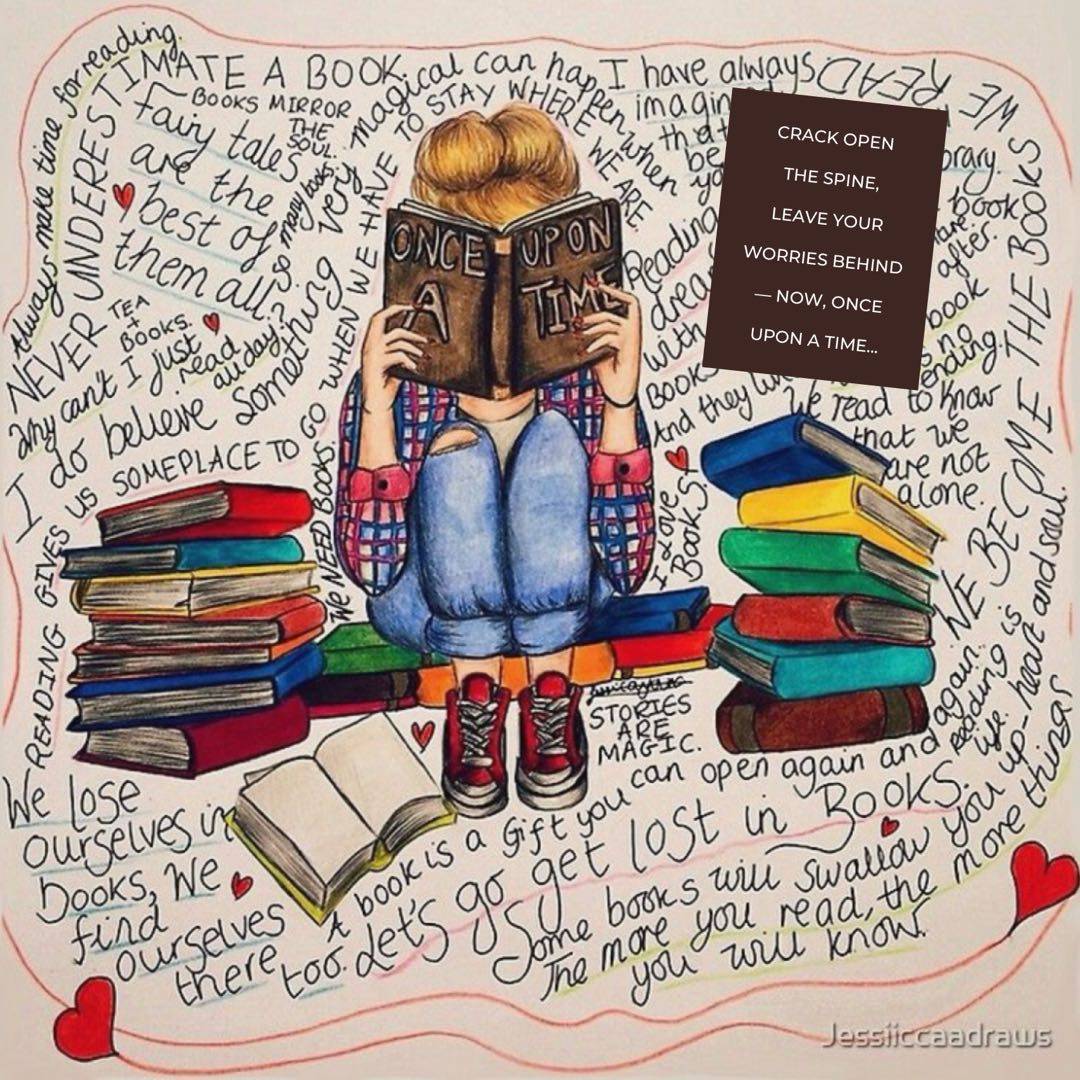 Always make time for reading.
NEVER UNDERESTIMATE A BOOK.
BOOKS MIRROR
THE
SOUL.
Fairy tales
are the
best of
them all.
so many books.
TEA
+
BOOKS.
Why can't I just
read
all day?
I do believe something very magical can happen when you
I have always
imagin
that
be
brary.
WE READ
TO STAY WHERE WE ARE
READING GIVES US SOMEPLACE TO GO WHEN WE HAVE
We NEED BOOKS.
ONCE
A
UPON
TIME
CRACK OPEN
THE SPINE,
LEAVE YOUR
WORRIES BEHIND
— NOW, ONCE
UPON A TIME...
Reading
dream
with
book
after
book
no
ending.
BOOKS
And they
We read to know
that we
are not
alone.
I love
Books.
WE BECOME THE BOOKS
STORIES
ARE
MAGIC.
Reading is
life.
We lose
ourselves in
books, We
find
ourselves
there too.
A book is a gift you can open again and again.
Let's go get lost in Books.
Some books will swallow you up - heart and soul.
The more you read, the more things
you will know.
Jessiiccaadraws